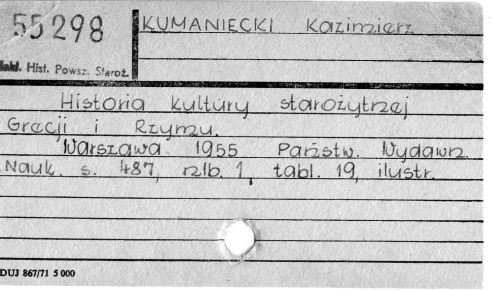 55298
KUMANIECKI Kazimierz
Zakł. Hist. Powsz. Staroż.
Historia kultury starożytnej
Grecji i Rzymu.
Warszawa 1955 Państw. Wydawn.
Nauk. s. 487, nlb. 1, tabl. 19, ilustr.
DUJ 867/71 5 000